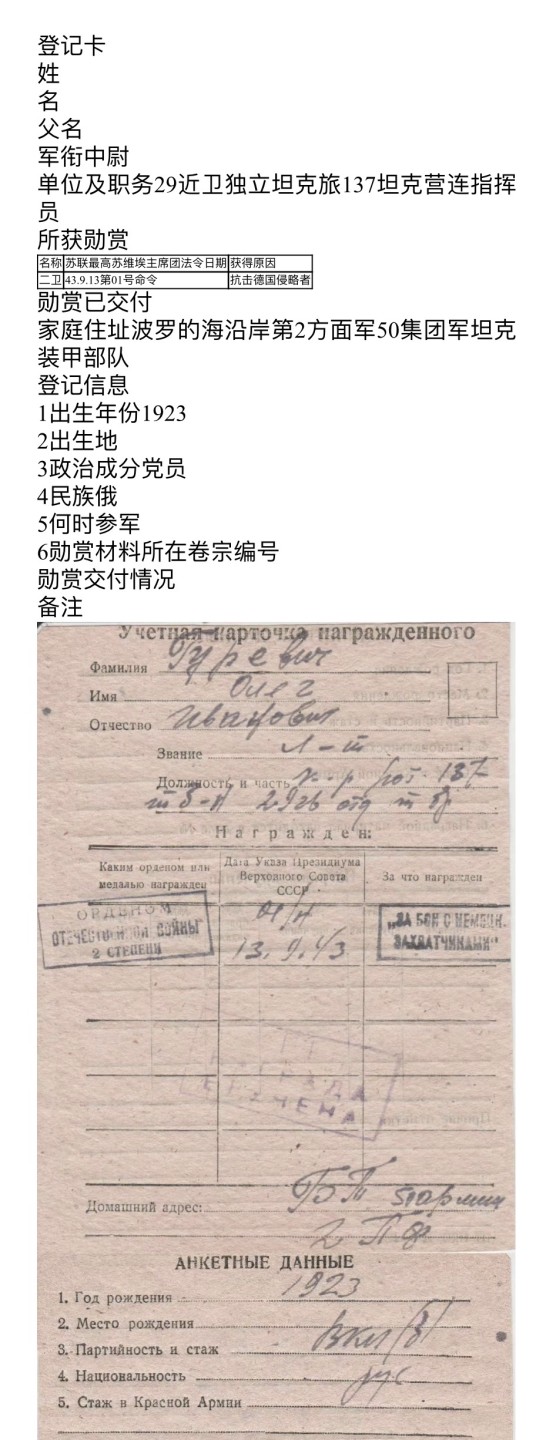 登记卡
姓
名
父名
军衔中尉
单位及职务29近卫独立坦克旅137坦克营连指挥
员
所获勋赏
名称 苏联最高苏维埃主席团法令日期 获得原因
二卫 43.9.13第01号命令 抗击德国侵略者
勋赏已交付
家庭住址波罗的海沿岸第2方面军50集团军坦克
装甲部队
登记信息
1出生年份1923
2出生地
3政治成分党员
4民族俄
5何时参军
6勋赏材料所在卷宗编号
勋赏交付情况
备注
Учетная карточка награжденного
Фамилия Гуревич
Имя Олег
Отчество Иванович
Звание л-т
Должность и часть к-р рот. 137
тб-н 29гв отд т бр
Награжден:
Каким орденом или медалью награжден
Дата Указа Президиума Верховного Совета СССР
За что награжден
ОРДЕНОМ
ОТЕЧЕСТВЕННОЙ ВОЙНЫ
2 СТЕПЕНИ
01/н
13.9.43
„ЗА БОИ С НЕМЕЦК.
ЗАХВАТЧИКАМИ"
Домашний адрес: БТ 5 армии
2 ПФ
АНКЕТНЫЕ ДАННЫЕ
1. Год рождения 1923
2. Место рождения
3. Партийность и стаж ВКП(б)
4. Национальность рус
5. Стаж в Красной Армии